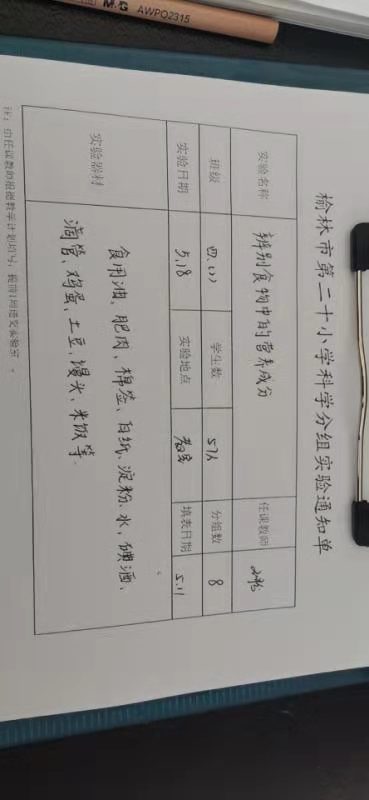 M&G AWPQ2315
榆林市第二十小学科学分组实验通知单
实验名称 辨别食物中的营养成分 任课教师
班级 四.(1) 学生数 57人 分组数 8
实验日期 5.18 实验地点 教室 填表日期 5.11
实验器材 食用油、肥肉、棉签、白纸、淀粉、水、碘酒、
滴管、鸡蛋、土豆、馒头、米饭等.
注:由任课教师根据教学计划填写,提前1周送交实验室。